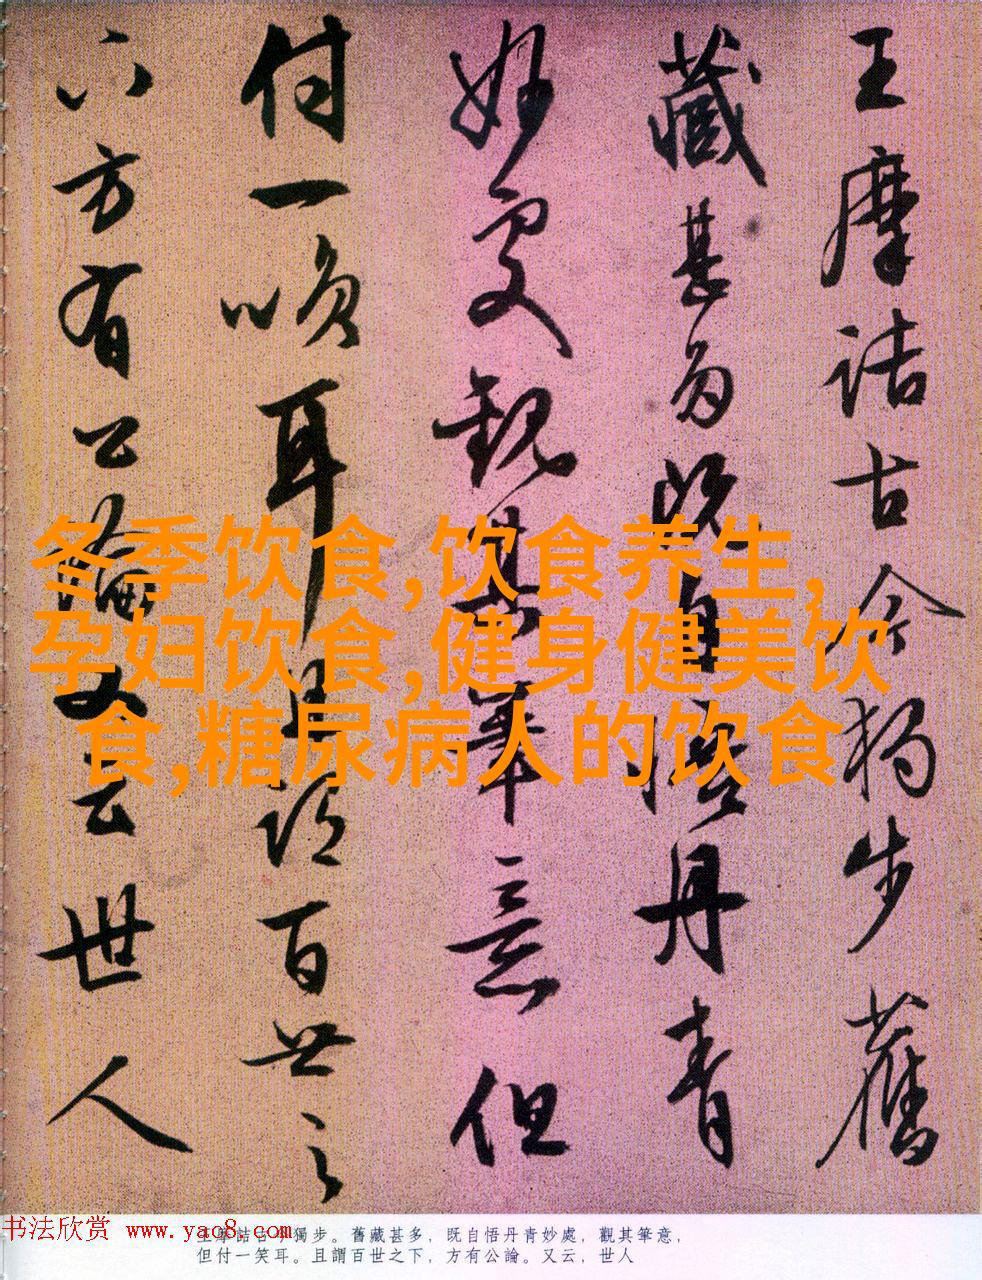 王摩詰古今獨步舊
藏甚多既自悟丹青
妙處觀其筆意但
付一咲耳且謂百世之
下方有公論又云世人
冬季饮食,饮食养生,
孕妇饮食,健身健美饮
食,糖尿病人的饮食
书法欣赏 www.yac8.com
王摩詰古今獨步。舊藏甚多，既自悟丹青妙處，觀其筆意，
但付一笑耳。且謂百世之下，方有公論。又云，世人